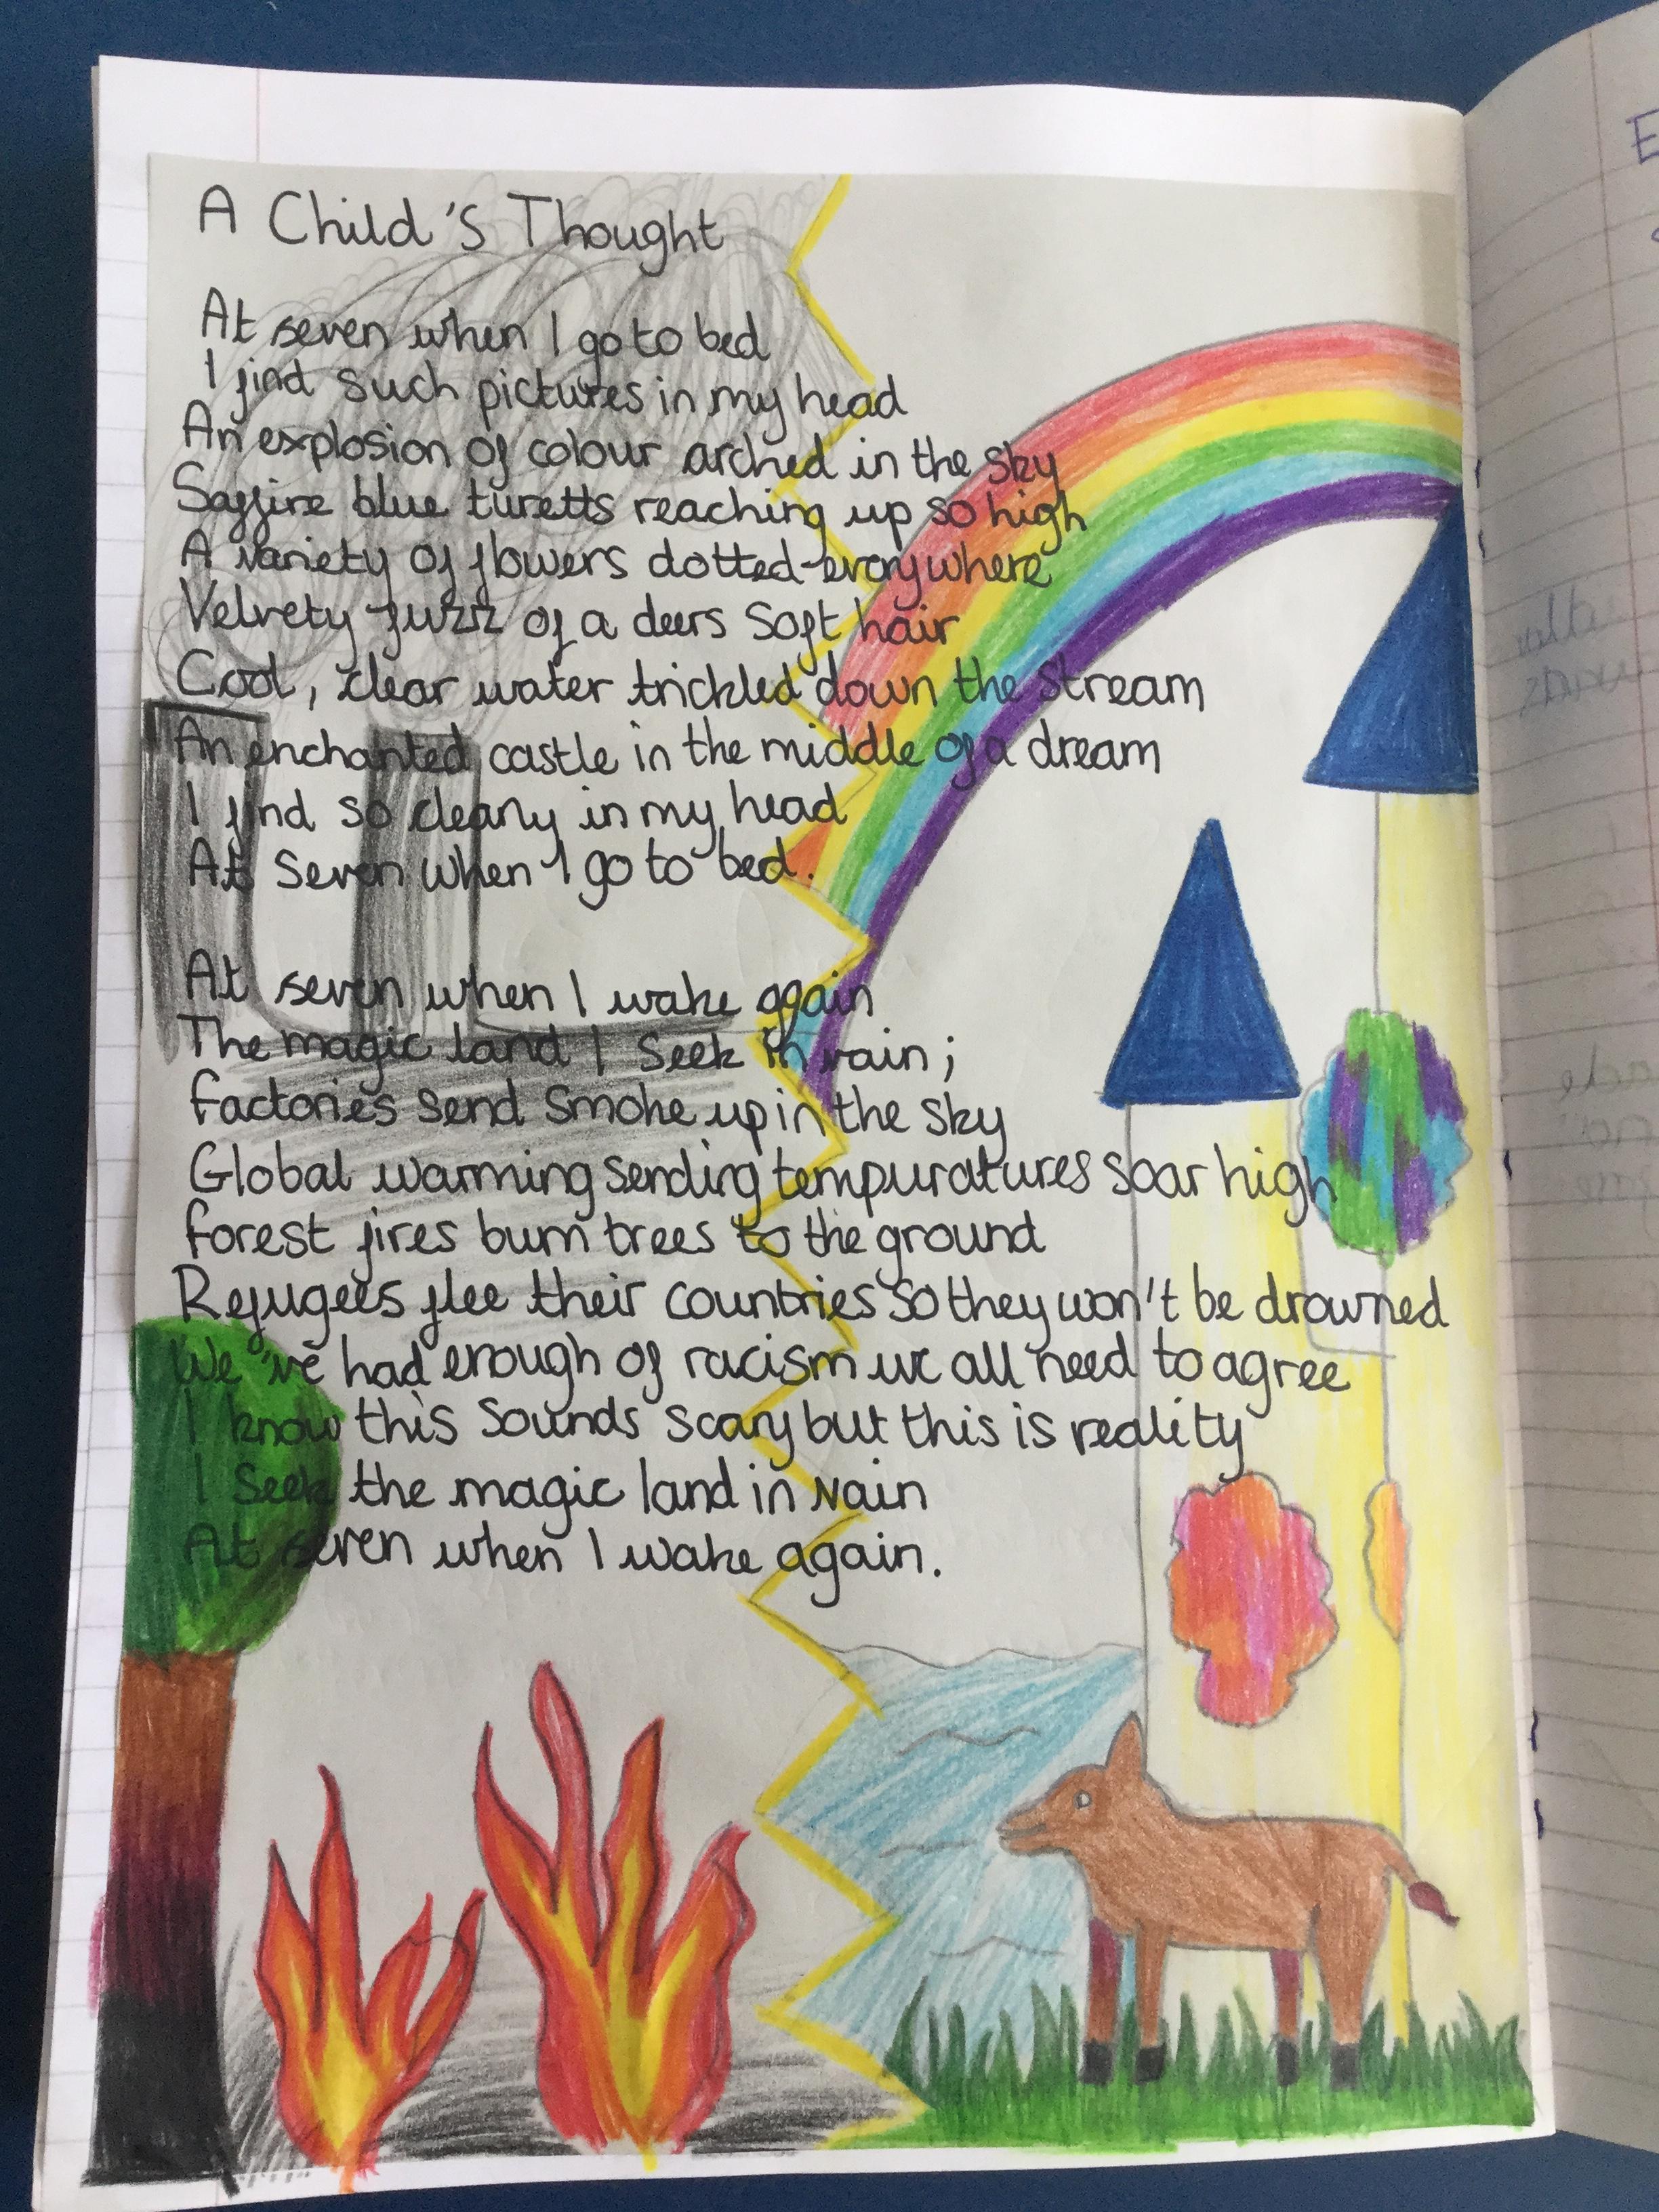 A Child's Thought
At seven when I go to bed
I find such pictures in my head
An explosion of colour arched in the sky
Saffire blue turetts reaching up so high
A variety of flowers dotted everywhere
Velvety fuzz of a deers soft hair
Cool, clear water trickled down the stream
An enchanted castle in the middle of a dream
I find so clearly in my head
At seven when I go to bed.
At seven when I wake again
The magic land I seek in vain;
Factories send smoke up in the sky
Global warming sending tempuratures soar high
Forest fires burn trees to the ground
Refugees flee their countries so they won't be drowned
We've had enough of racism we all need to agree
I know this sounds scary but this is reality
I seek the magic land in vain
At seven when I wake again.